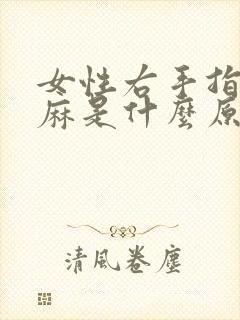 女性右手指
麻是什麼原
清風卷塵